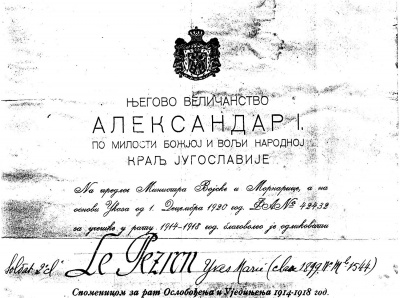 ЊЕГОВО ВЕЛИЧАНСТВО
АЛЕКСАНДАР I.
ПО МИЛОСТИ БОЖЈОЈ И ВОЉИ НАРОДНОЈ
КРАЉ ЈУГОСЛАВИЈЕ
На предлог Министра Војске и Морнарице, а на
основи Указа од 1. Децембра 1920 год. ФА№ 42432
за учешће у рату 1914-1918 год. благоволео је одликовати
Soldat 2e cl Le Pezron Yves Marie (classe 1899 Nº Mle 1544)
Споменицом за рат Ослобођења и Уједињења 1914-1918 год.